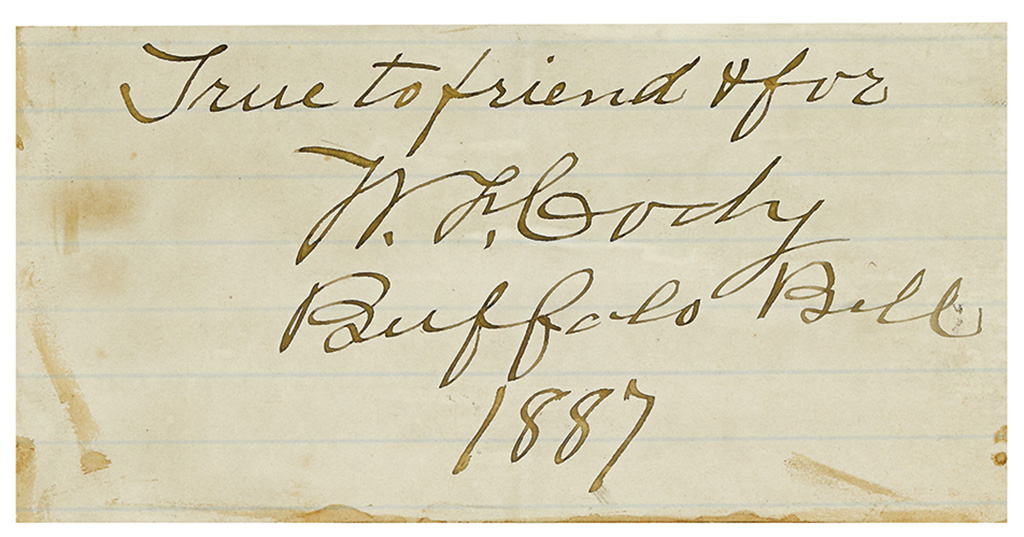 True to friend & for
W. F. Cody
Buffalo Bill
1887